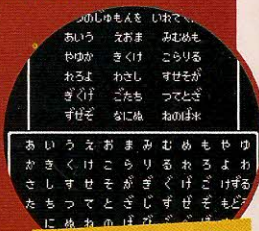 つのじゅもんを いれてく
あいう えおま みむめも
やゆか きくけ こらりる
れろよ わさし すせそが
ぎぐげ ごたち つてとざ
ずぜぞ なにぬ ねのば*
あ い う え お ま み む め も や ゆ
か き く け こ ら り る れ ろ よ わ
さ し す せ そ が ぎ ぐ げ ご けする
た ち つ て と ざ じ ず ぜ ぞ もどる
に ぬ ね の ば び